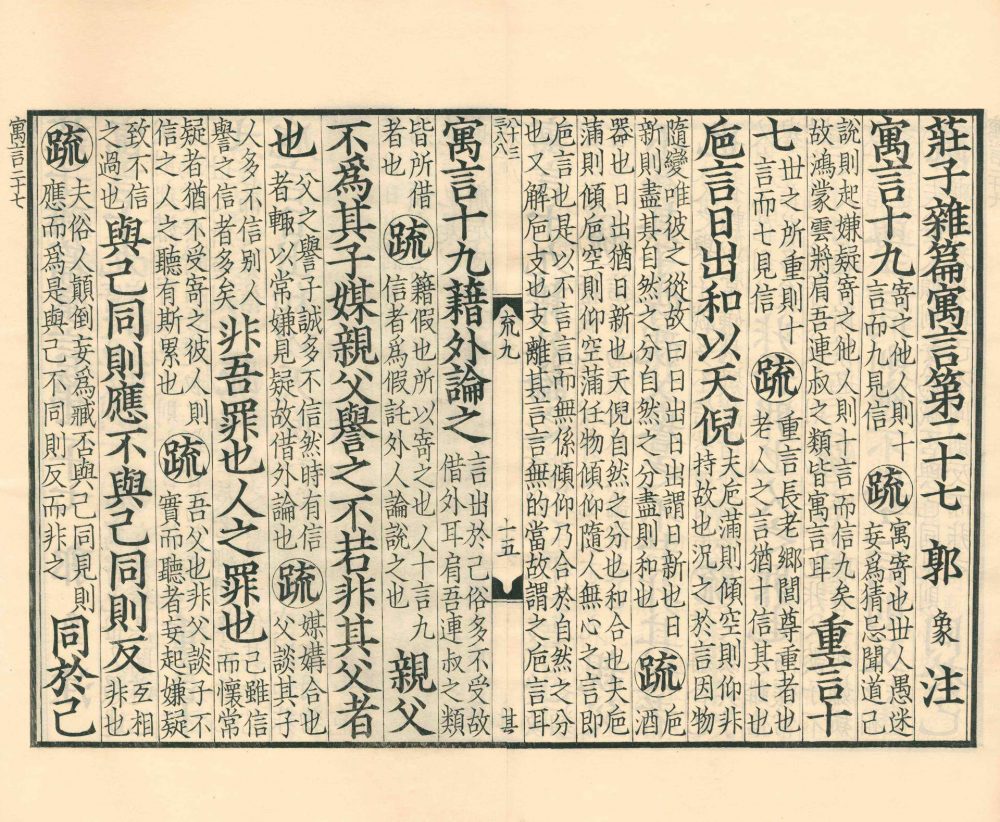 莊子雜篇寓言第二十七 郭象注
寓言十九寄之他人則十言而九見信疏寓寄也丗人愚迷妄爲猜忌聞道己
說則起嫌疑寄之他人則十言而信九矣故鴻蒙雲將肩吾連叔之類皆寓言耳重言十
七丗之所重則十言而七見信疏重言長老鄉閭尊重者也老人之言猶十信其七也
巵言日出和以天倪夫巵滿則傾空則仰非持故也況之於言因物
隨變唯彼之從故曰日出日出謂日新也日新則盡其自然之分自然之分盡則和也疏巵酒
器也日出猶日新也天倪自然之分也和合也夫巵滿則傾巵空則仰空滿任物傾仰隨人無心之言即
巵言也是以不言言而無係傾仰乃合於自然之分也又解巵支也支離其言言無的當故謂之巵言耳
十三
三八八
㐬九
十五
其
寓言十九藉外論之言出於己俗多不受故借外耳肩吾連叔之類
皆所借者也疏籍假也所以寄之也人十言九信者爲假託外人論說之也親父
不爲其子媒親父譽之不若非其父者
也父之譽子誠多不信然時有信者輙以常嫌見疑故借外論也疏媒媾合也父談其子
人多不信别人譽之信者多矣非吾罪也人之罪也己雖信而懷常
疑者猶不受寄之彼人則信之人之聽有斯累也疏吾父也非父談子不實而聽者妄起嫌疑
致不信之過也與己同則應不與己同則反互相非也
疏夫俗人顛倒妄爲臧否與己同見則應而爲是與己不同則反而非之同於己
寓言二十七